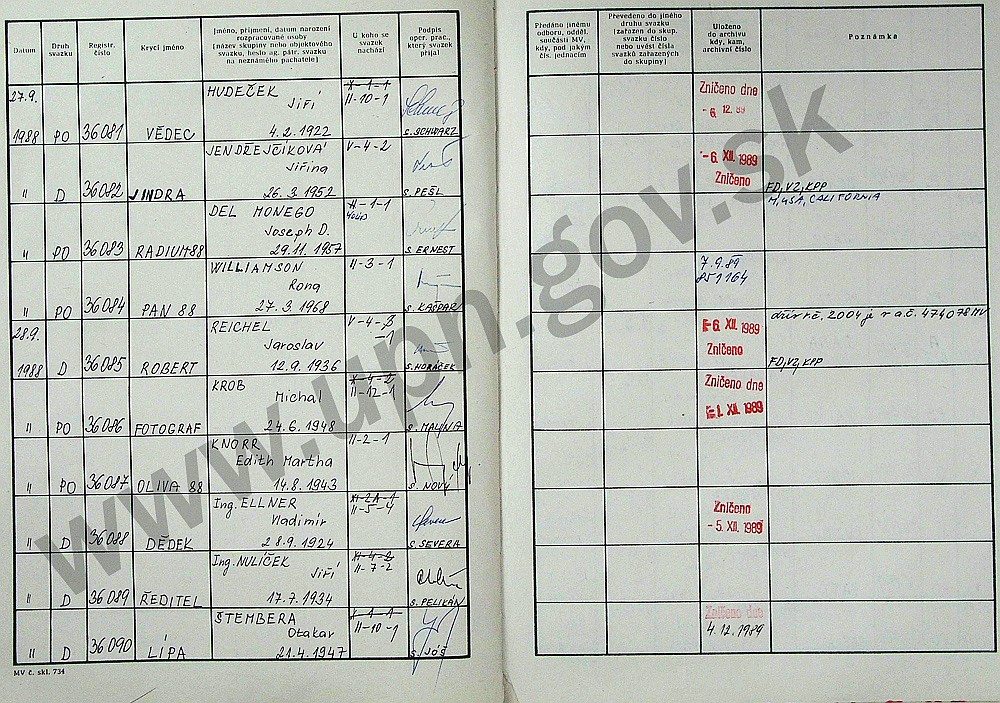 Datum
Druh svazku
Registr. číslo
Krycí jméno
Jméno, příjmení, datum narození
rozpracované osoby
(název skupiny nebo objektového
svazku, heslo ag. pátr. svazku
na neznámého pachatele)
U koho se
svazek
nachází
Podpis
oper. prac.,
který svazek
přijal
Předáno jinému
odboru, odděl.
součásti MV,
kdy, pod jakým
čís. jednacím
Převedeno do jiného
druhu svazku
(zařazen do skup.
svazku číslo
nebo uvést čísla
svazků zařazených
do skupiny)
Uloženo
do archivu
kdy, kam,
archivní číslo
Poznámka
27.9.
1988 PO 36081 VĚDEC
HUDEČEK
Jiří
4.2.1922
X-1-1
II-10-1
s. SCHWARZ
Zničeno dne
-6. 12. 89
" D 36082 JINDRA
JENDŘEJČÍKOVÁ
Jiřina
26.3.1952
V-4-2
s. PEŠL
-6. XII. 1989
Zničeno
FD, VZ, KPP
" PO 36083 RADIUM 88
DEL MONEGO
Joseph D.
29.11.1957
s. ERNEST
M, USA, CALIFORNIA
" PO 36084 PAN 88
WILLIAMSON
Rona
27.3.1968
II-3-1
s. KAŠPAR
7.9.89
851164
28.9.
1988 D 36085 ROBERT
REICHEL
Jaroslav
12.9.1936
V-4-3
-1
s. HORÁČEK
-6. XII. 1989
Zničeno
FD, VZ, KPP
" PO 36086 FOTOGRAF
KROB
Michal
24.6.1948
X-4-2
II-12-1
s. MALINA
Zničeno dne
-1. XII. 1989
" PO 36087 OLIVA 88
KNORR
Edith Martha
14.8.1943
II-2-1
s. NOVÝ
" D 36088 DĚDEK
Ing. ELLNER
Vladimír
28.9.1924
II-5-4
s. SEVERA
Zničeno
-5. XII. 1989
" D 36089 ŘEDITEL
Ing. NULÍČEK
Jiří
17.7.1934
II-7-2
s. PELIKÁN
" D 36090 LÍPA
ŠTEMBERA
Otakar
21.4.1947
X-1-1
II-10-1
s. JÓŠ
Zničeno dne
4.12.1989
MV č. skl. 734
www.upn.gov.sk